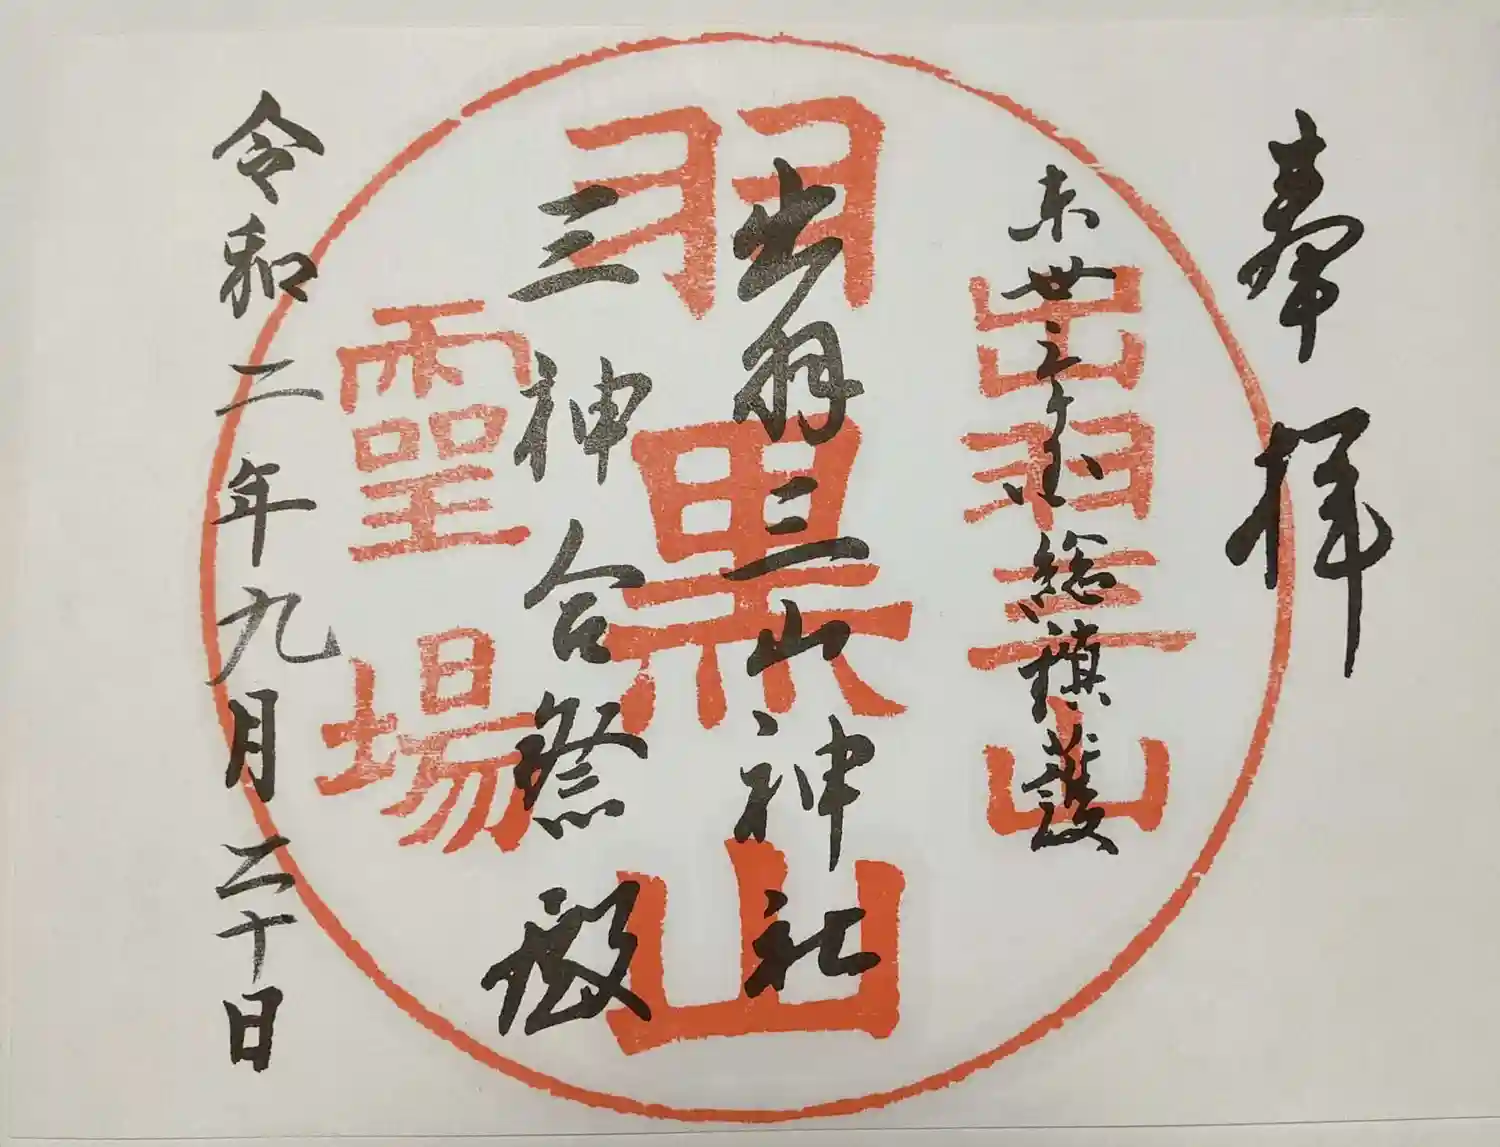 奉拝
東卅三ヶ国総鎮護
出羽三山神社
三神合祭殿
令和二年九月二十日
出羽三山
羽黒山
靈場